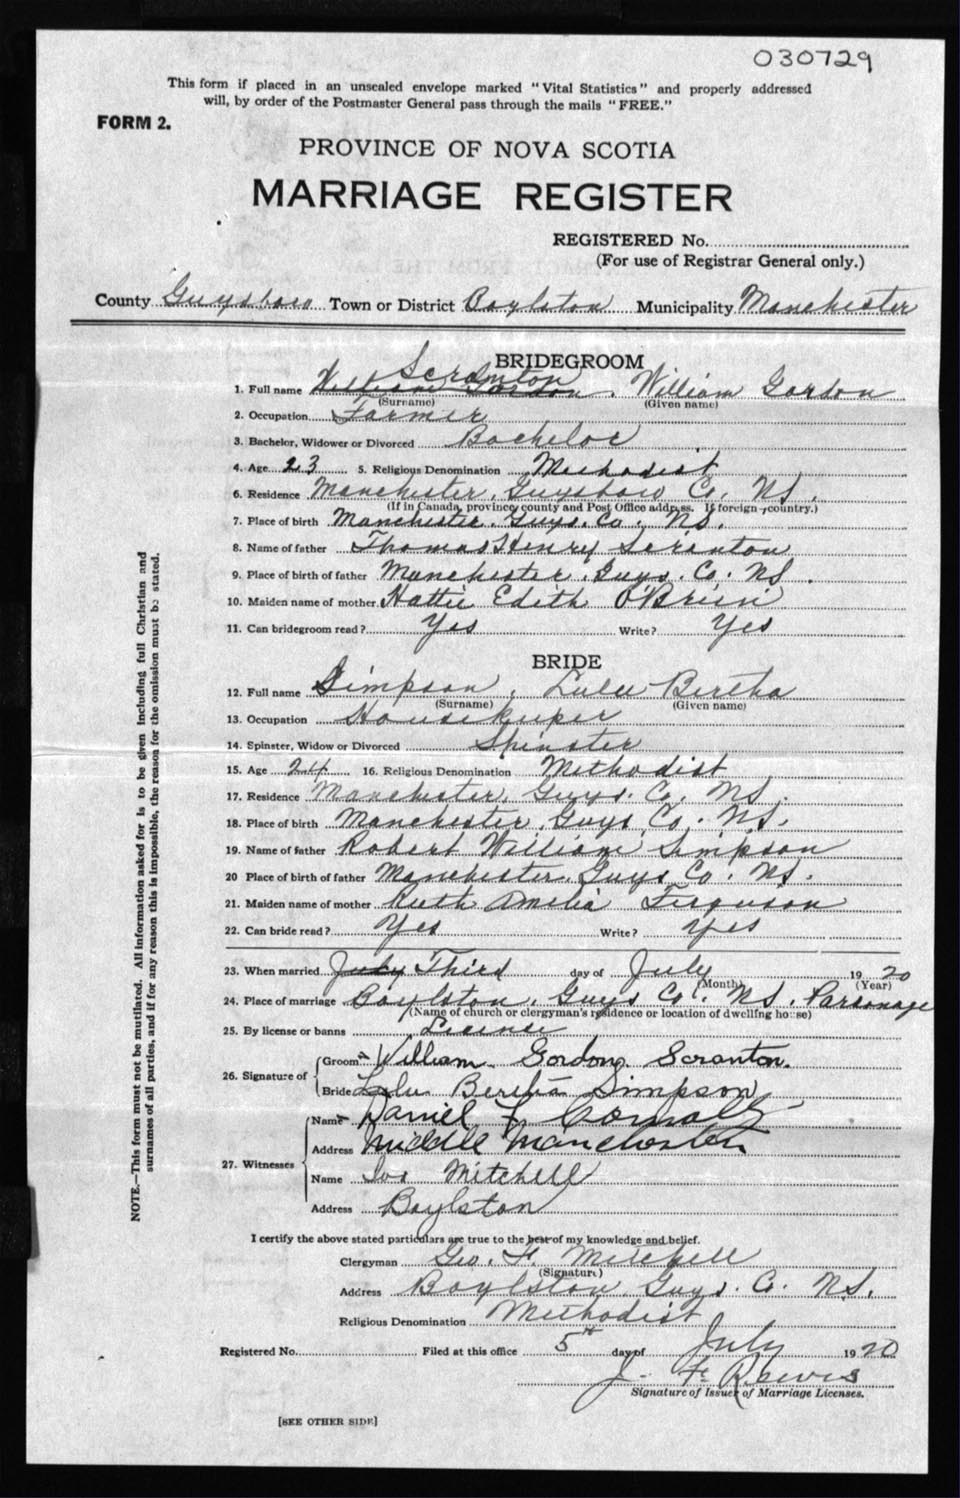 030729
This form if placed in an unsealed envelope marked "Vital Statistics" and properly addressed
will, by order of the Postmaster General pass through the mails "FREE."
FORM 2.
PROVINCE OF NOVA SCOTIA
MARRIAGE REGISTER
REGISTERED No.
(For use of Registrar General only.)
County Guysboro Town or District Boylston Municipality Manchester
BRIDEGROOM
Scranton
1. Full name William Gordon, William Gordon
(Surname) (Given name)
2. Occupation Farmer
3. Bachelor, Widower or Divorced Bachelor
4. Age 23 5. Religious Denomination Methodist
6. Residence Manchester, Guysboro Co. NS.
(If in Canada, province, county and Post Office address. If foreign, country.)
7. Place of birth Manchester, Guys. Co. NS.
8. Name of father Thomas Henry Scranton
9. Place of birth of father Manchester, Guys. Co. NS.
10. Maiden name of mother Hattie Edith O'Brien
11. Can bridegroom read? Yes Write? Yes
BRIDE
12. Full name Simpson, Lulu Bertha
(Surname) (Given name)
13. Occupation Housekeeper
14. Spinster, Widow or Divorced Spinster
15. Age 24 16. Religious Denomination Methodist
17. Residence Manchester, Guys. Co. NS.
18. Place of birth Manchester, Guys Co. NS.
19. Name of father Robert William Simpson
20 Place of birth of father Manchester, Guys Co. NS.
21. Maiden name of mother Ruth Amelia Ferguson
22. Can bride read? Yes Write? Yes
23. When married July Third day of July 1920
(Month) (Year)
24. Place of marriage Boylston, Guys Co. NS. Parsonage
(Name of church or clergyman's residence or location of dwelling house)
25. By license or banns License
26. Signature of Groom William Gordon Scranton.
Bride Lulu Bertha Simpson
27. Witnesses Name Daniel F
Address Middle Manchester
Name Mitchell
Address Boylston
I certify the above stated particulars are true to the best of my knowledge and belief.
Clergyman Geo. F. Mitchell
(Signature)
Address Boylston Guys. Co. NS.
Religious Denomination Methodist
Registered No. Filed at this office 5th day of July 1920
J. F.
Signature of Issuer of Marriage Licenses.
[SEE OTHER SIDE]
NOTE.—This form must not be mutilated. All information asked for is to be given including full Christian and
surnames of all parties, and if for any reason this is impossible, the reason for the omission must be stated.